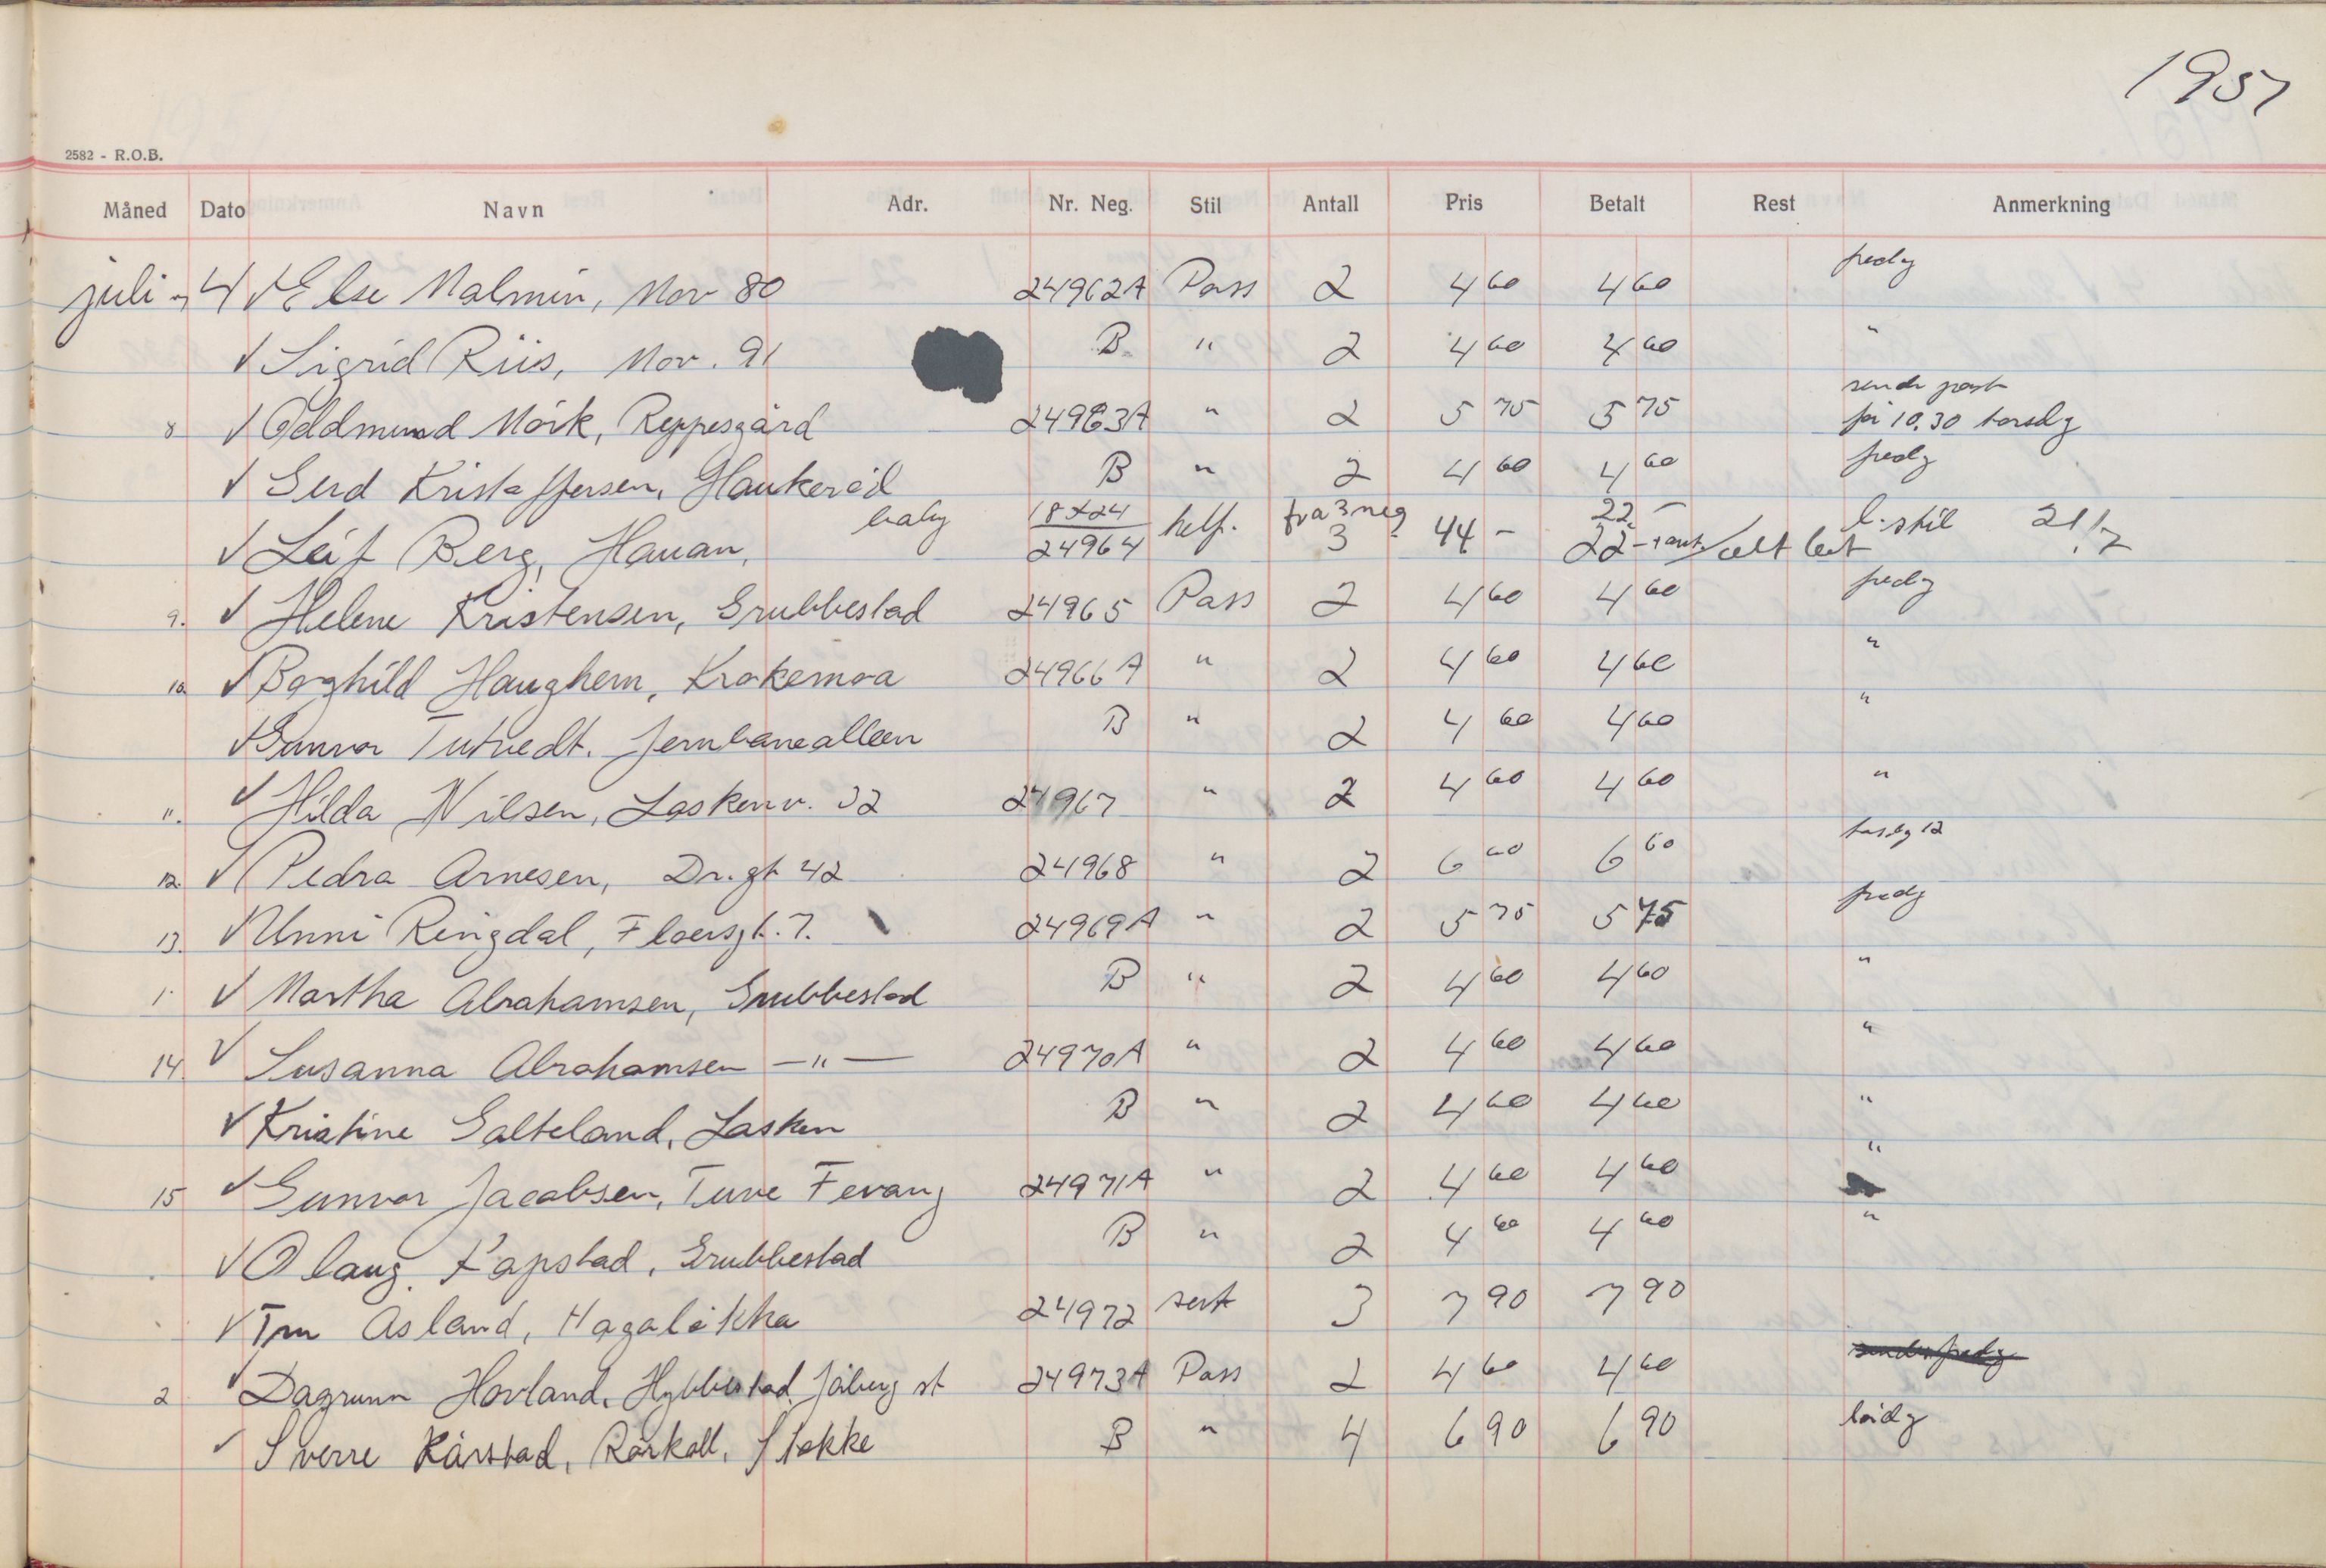 1957
2582 - R.O.B.
Måned Dato Navn Adr. Nr. Neg. Stil Antall Pris Betalt Rest Anmerkning
juli 4 ✓ Else Malmin, Nor 80 24962A Pass 2 4 60 4 60 fredg
✓ Sigrid Riis, Nor. 91 B " 2 4 60 4 60 "
sendes post
8 ✓ Oddmund Mörk, Reppesgård 24963A " 2 5 75 5 75 før 10.30 torsdg
✓ Gerd Kristoffersen, Haukeröd B " 2 4 60 4 60 fredg
baby 18x24 fra 3 neg 22 -
✓ Leif Berg, Hauan, 24964 helf. 3 44 - 22 - alt bet l. stil 21/7
9. ✓ Helene Kristensen, Grubbestad 24965 Pass 2 4 60 4 60 fredg
10. ✓ Borghild Haughem, Krokemoa 24966A " 2 4 60 4 60 "
✓ Gunvor Tutvedt. Jernbanealleen B " 2 4 60 4 60 "
11. ✓ Hilda Nilsen, Laskenv. 32 24967 " 2 4 60 4 60 "
12. ✓ Pedra Arnesen, Dr. gt 42 24968 " 2 6 60 6 60 torsdg 12
13. ✓ Unni Ringdal, Floersgt. 7. 24969A " 2 5 75 5 75 fredg
1 ✓ Martha Abrahamsen, Grubbestad B " 2 4 60 4 60 "
14. ✓ Susanna Abrahamsen — " — 24970A " 2 4 60 4 60 "
✓ Kristine Galteland, Lasken B " 2 4 60 4 60 "
15 ✓ Gunvor Jacobsen, Tuve Fevang 24971A " 2 4 60 4 60 "
✓ Olaug Kapstad, Grubbestad B " 2 4 60 4 60 "
✓ Tm Asland, Hagaløkka 24972 sert 3 7 90 7 90
2 ✓ Dagrunn Hovland, Hybbestad, Jåberg st 24973A Pass 2 4 60 4 60
✓ Sverre Kårstad, Rörkoll, Stokke B " 4 6 90 6 90 lördg